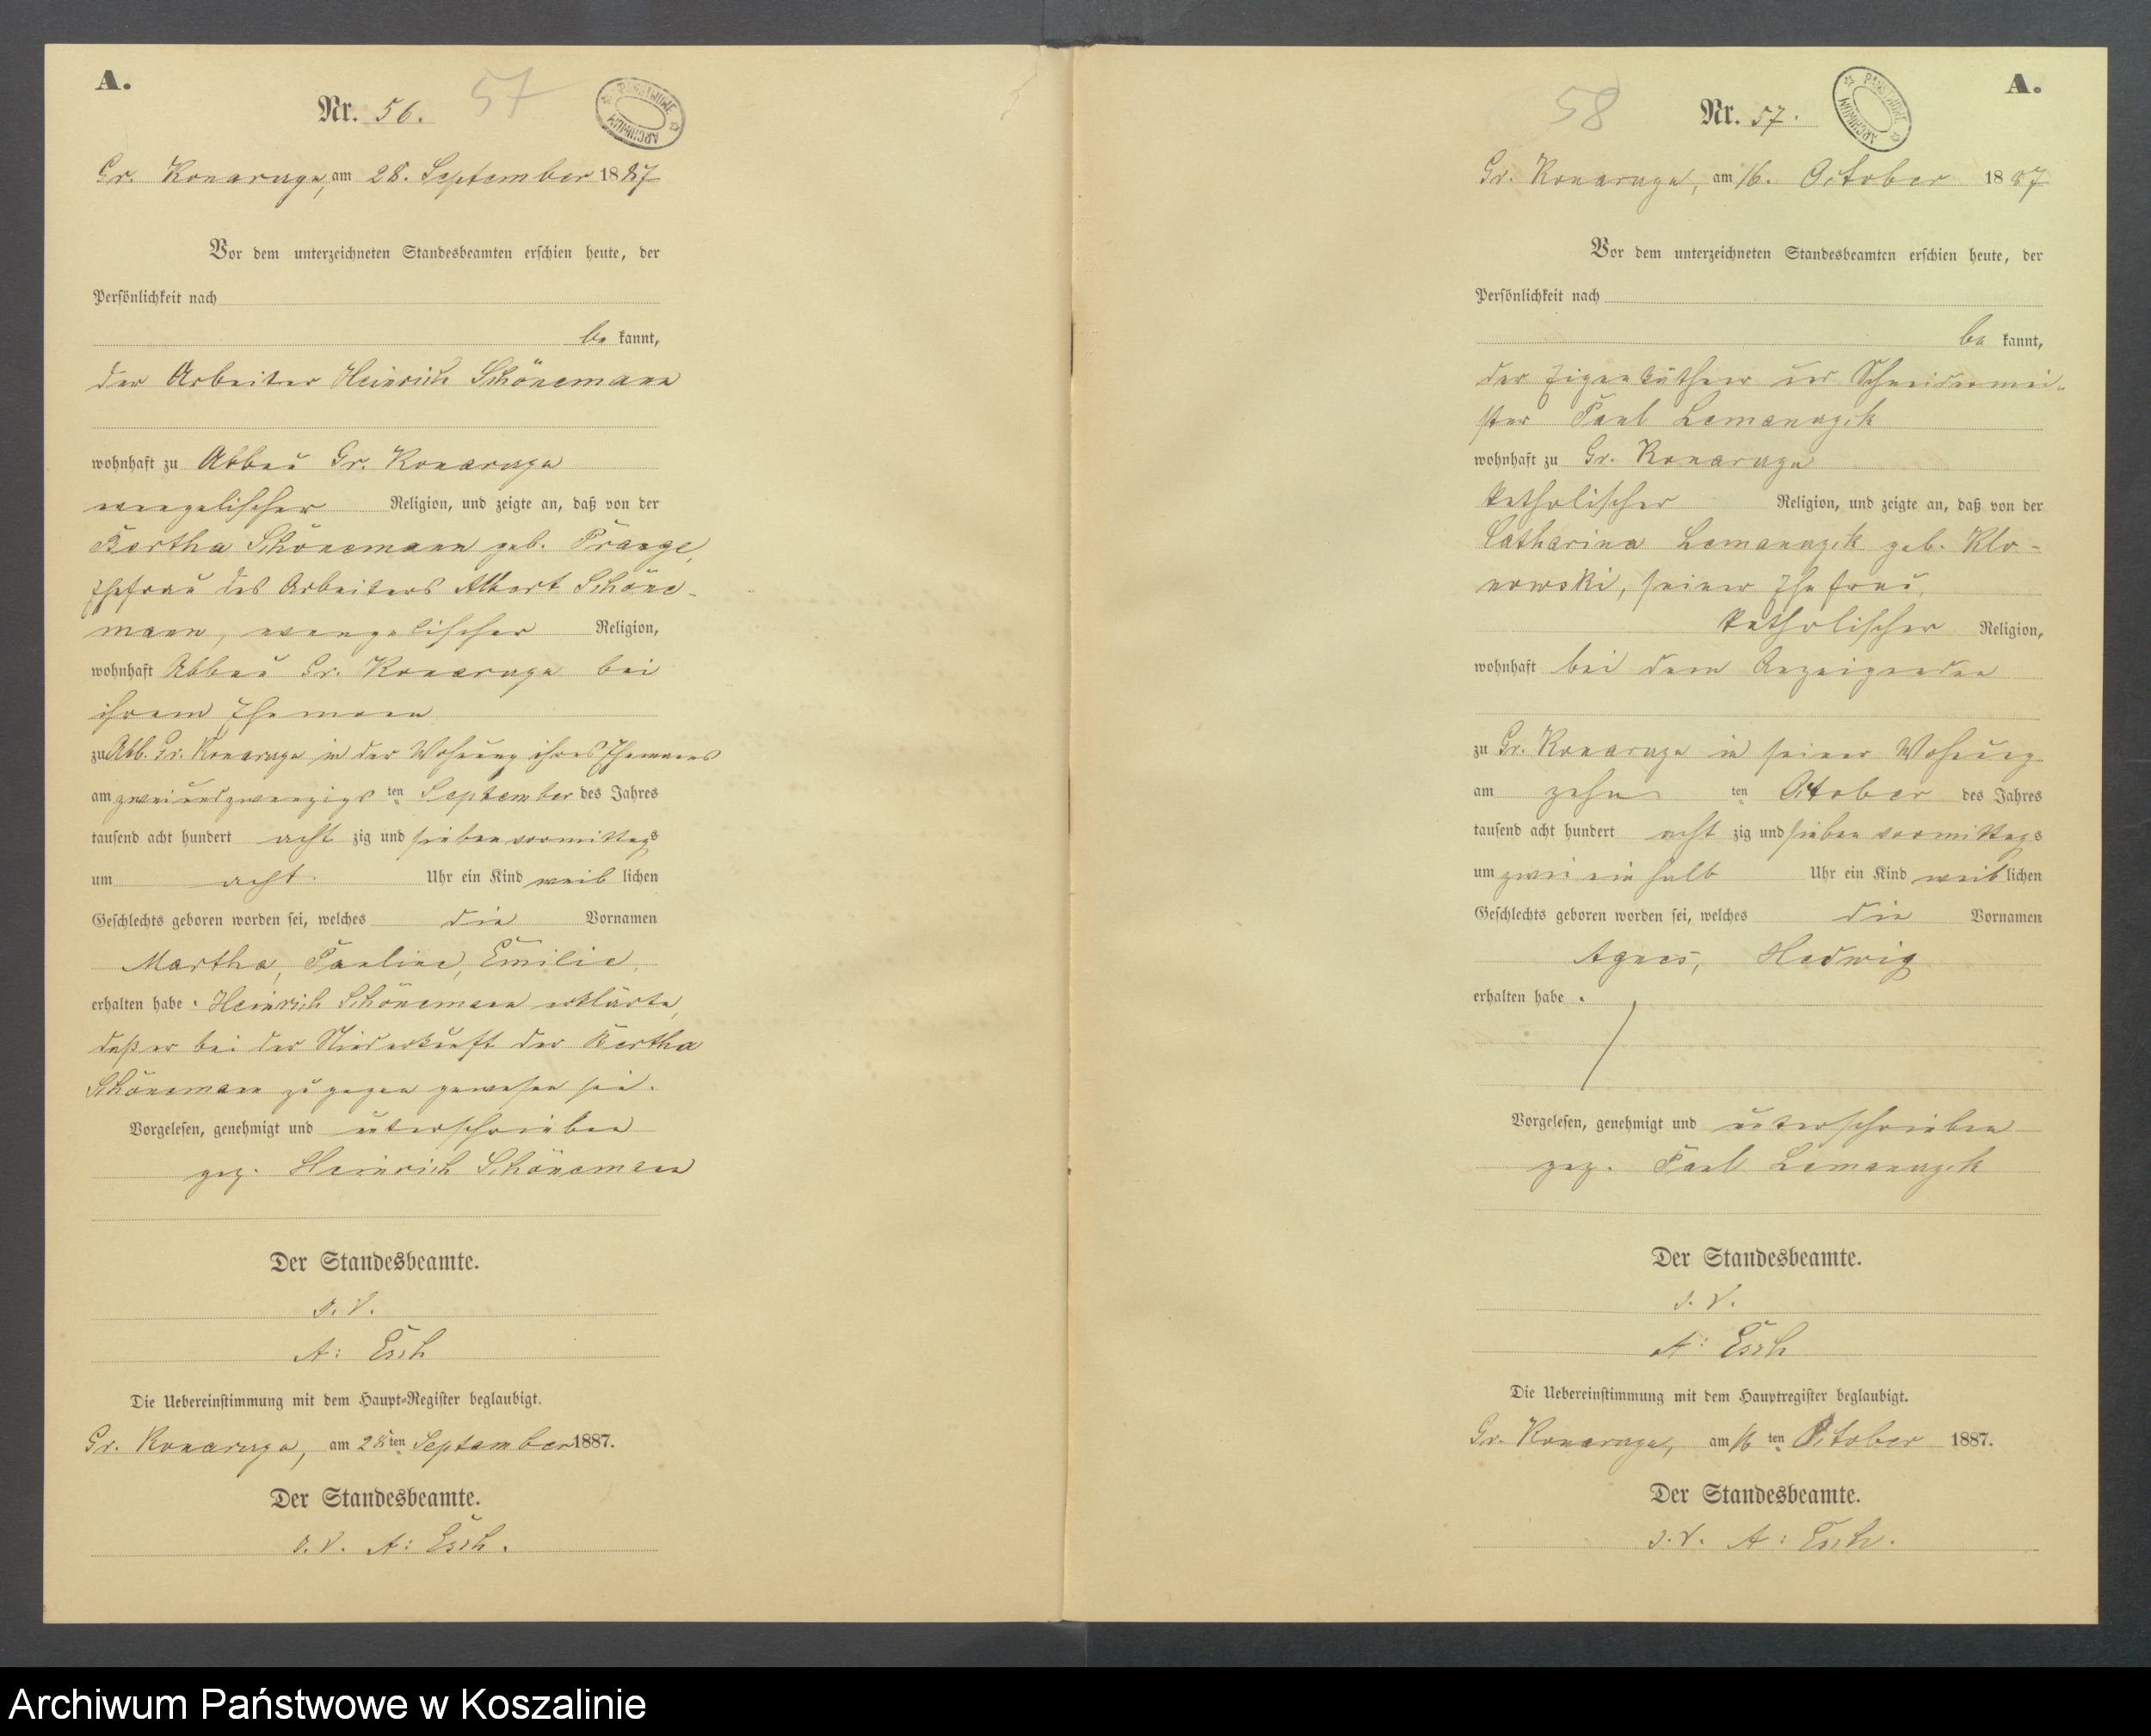 A.
Nr. 56.
57
ARCHIWUM PAŃSTWOWE
Gr. Konarczyn, am 28. September 1887
Vor dem unterzeichneten Standesbeamten erschien heute, der
Persönlichkeit nach
be kannt,
der Arbeiter Heinrich Schönemann
wohnhaft zu Abbau Gr. Konarczyn
evangelischer Religion, und zeigte an, daß von der
Bertha Schönemann geb. Prange,
Ehefrau des Arbeiters Albert Schöne-
mann, evangelischer Religion,
wohnhaft Abbau Gr. Konarczyn bei
ihrem Ehemann
zu Abb. Gr. Konarczyn in der Wohnung ihres Ehemanns
am zweiundzwanzigs ten September des Jahres
tausend acht hundert acht zig und sieben vormittags
um acht Uhr ein Kind weib lichen
Geschlechts geboren worden sei, welches die Vornamen
Martha, Pauline, Emilie,
erhalten habe. Heinrich Schönemann erklärte,
daß er bei der Niederkunft der Bertha
Schönemann zugegen gewesen sei.
Vorgelesen, genehmigt und unterschrieben
gez. Heinrich Schönemann
Der Standesbeamte.
A: Esch
Die Uebereinstimmung mit dem Haupt-Register beglaubigt.
Gr. Konarczyn, am 28ten September 1887.
Der Standesbeamte.
A: Esch.
A.
58
Nr. 57.
ARCHIWUM PAŃSTWOWE
Gr. Konarczyn, am 16. October 1887
Vor dem unterzeichneten Standesbeamten erschien heute, der
Persönlichkeit nach
be kannt,
der Eigenkäthner und Schneidermei-
ster Paul Lemanczik
wohnhaft zu Gr. Konarczyn
katholischer Religion, und zeigte an, daß von der
Catharina Lemanczik geb. Klo-
nowski, seiner Ehefrau,
katholischer Religion,
wohnhaft bei dem Anzeigenden
zu Gr. Konarczyn in seiner Wohnung
am zehn ten October des Jahres
tausend acht hundert acht zig und sieben vormittags
um zwei ein halb Uhr ein Kind weib lichen
Geschlechts geboren worden sei, welches die Vornamen
Agnes, Hedwig
erhalten habe.
Vorgelesen, genehmigt und unterschrieben
gez. Paul Lemanczik
Der Standesbeamte.
A: Esch
Die Uebereinstimmung mit dem Hauptregister beglaubigt.
Gr. Konarczyn, am 16 ten October 1887.
Der Standesbeamte.
A: Esch.
Archiwum Państwowe w Koszalinie